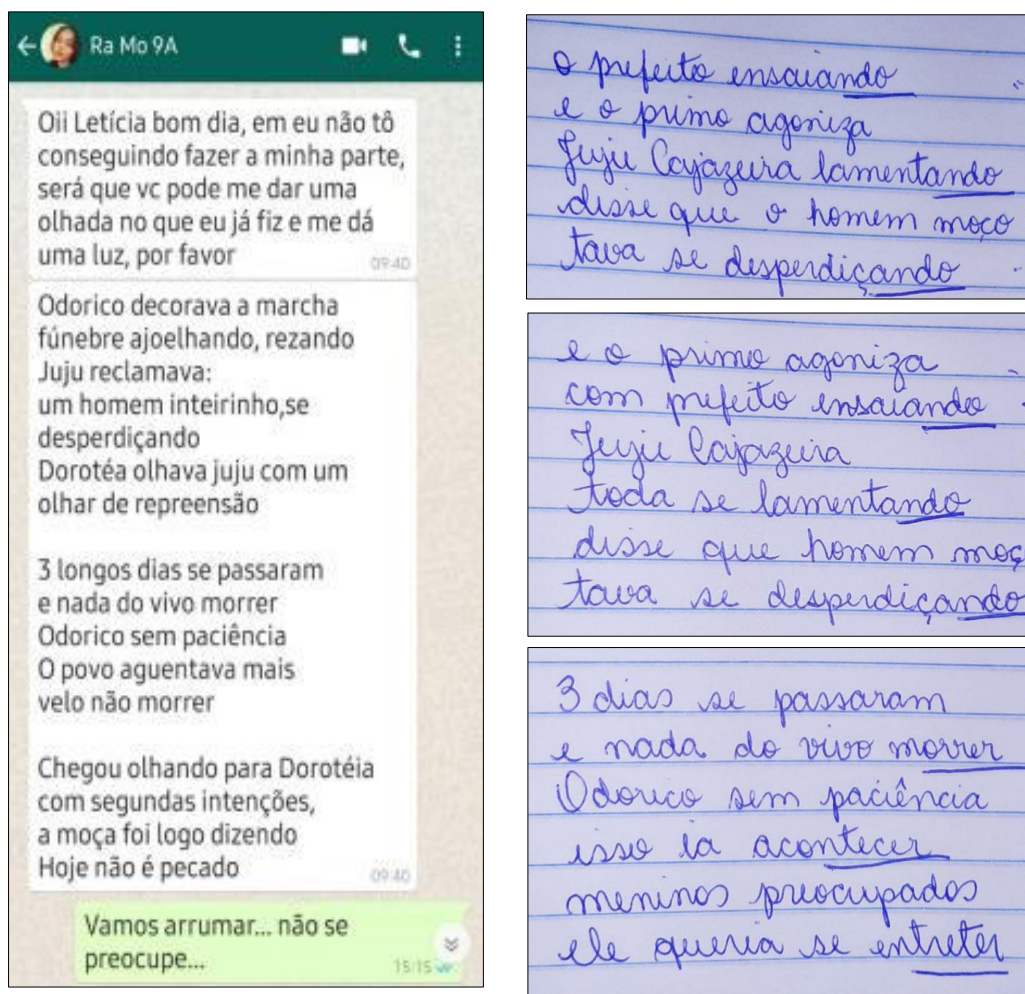 Ra Mo 9A
Oii Letícia bom dia, em eu não tô
conseguindo fazer a minha parte,
será que vc pode me dar uma
olhada no que eu já fiz e me dá
uma luz, por favor
09:40
Odorico decorava a marcha
fúnebre ajoelhando, rezando
Juju reclamava:
um homem inteirinho,se
desperdiçando
Dorotéa olhava juju com um
olhar de repreensão
3 longos dias se passaram
e nada do vivo morrer
Odorico sem paciência
O povo aguentava mais
velo não morrer
Chegou olhando para Dorotéia
com segundas intenções,
a moça foi logo dizendo
Hoje não é pecado
09:40
Vamos arrumar... não se
preocupe...
15:15
o prefeito ensaiando
e o primo agoniza
Juju Cajazeira lamentando
disse que o homem moço
tava se desperdiçando
e o primo agoniza
com prefeito ensaiando
Juju Cajazeira
toda se lamentando
disse que homem moç
tava se desperdiçando
3 dias se passaram
e nada do vivo morrer
Odorico sem paciência
isso ia acontecer
meninos preocupados
ele queria se entreter